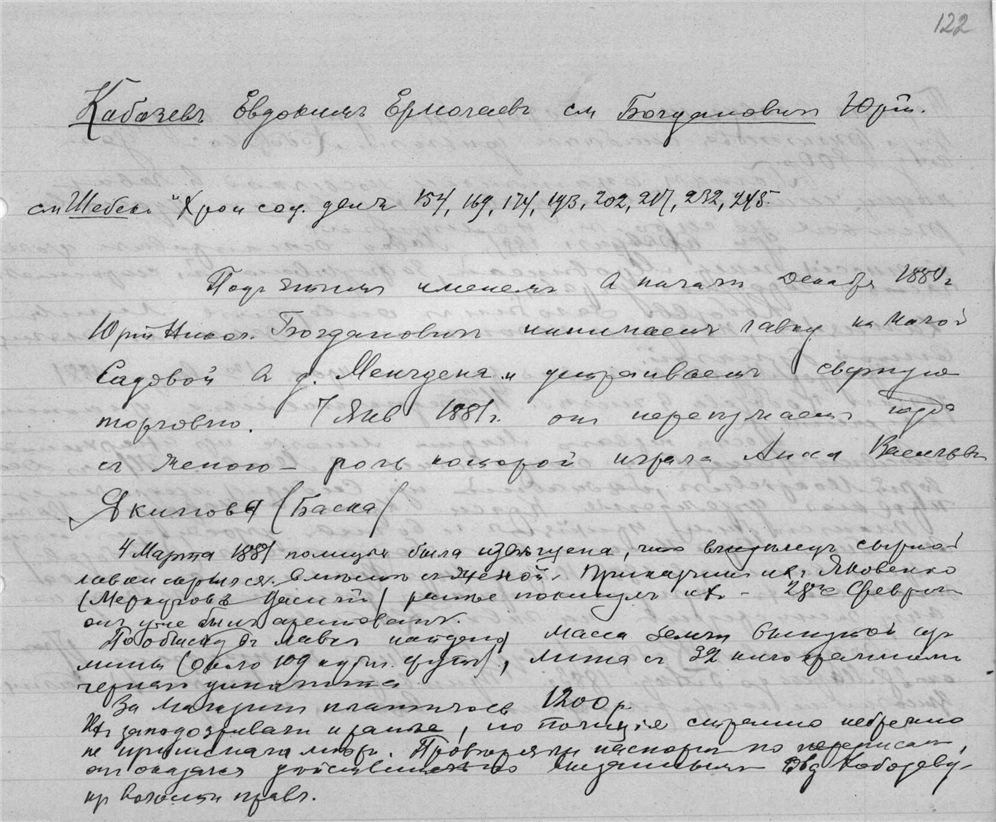 122
Кабозевъ Евдокимъ Ермолаевъ см Богдановичъ Юрій.
см Шебеко "Хрон соц. движ 154, 169, 174, 193, 202, 217, 232, 245.
Подъ этимъ именемъ въ началѣ Декабря 1880 г
Юрій Никол. Богдановичъ нанимаетъ лавку на Малой
Садовой въ д. Менгдена и устраиваетъ сырную
торговлю. 7 Янв 1881 г. онъ переѣзжаетъ туда
съ женою – роль которой играла Анна Васильевна
Якимова (Баска)
4 Марта 1881 полиція была, что владѣлецъ сырной
лавки скрылся вмѣстѣ съ женой. Прикащикъ ихъ Яковенко
(Меркуловъ Василій) ранѣе покинулъ ихъ – 28го Февраля
онъ уже былъ арестованъ.
По обыску въ лавкѣ найдена масса земли вынутой изъ
мины (около 109 кубич. футъ), мина съ 32 килограммами
чернаго динамита
За магазинъ платилось 1200 р
Их заподозрѣвали и ранѣе, но полиція странно небрежно
не принимала мѣръ. Провѣряли паспортъ по,
онъ оказался дѣйствительно выданнымъ Евд Кабозеву
из волости правл.